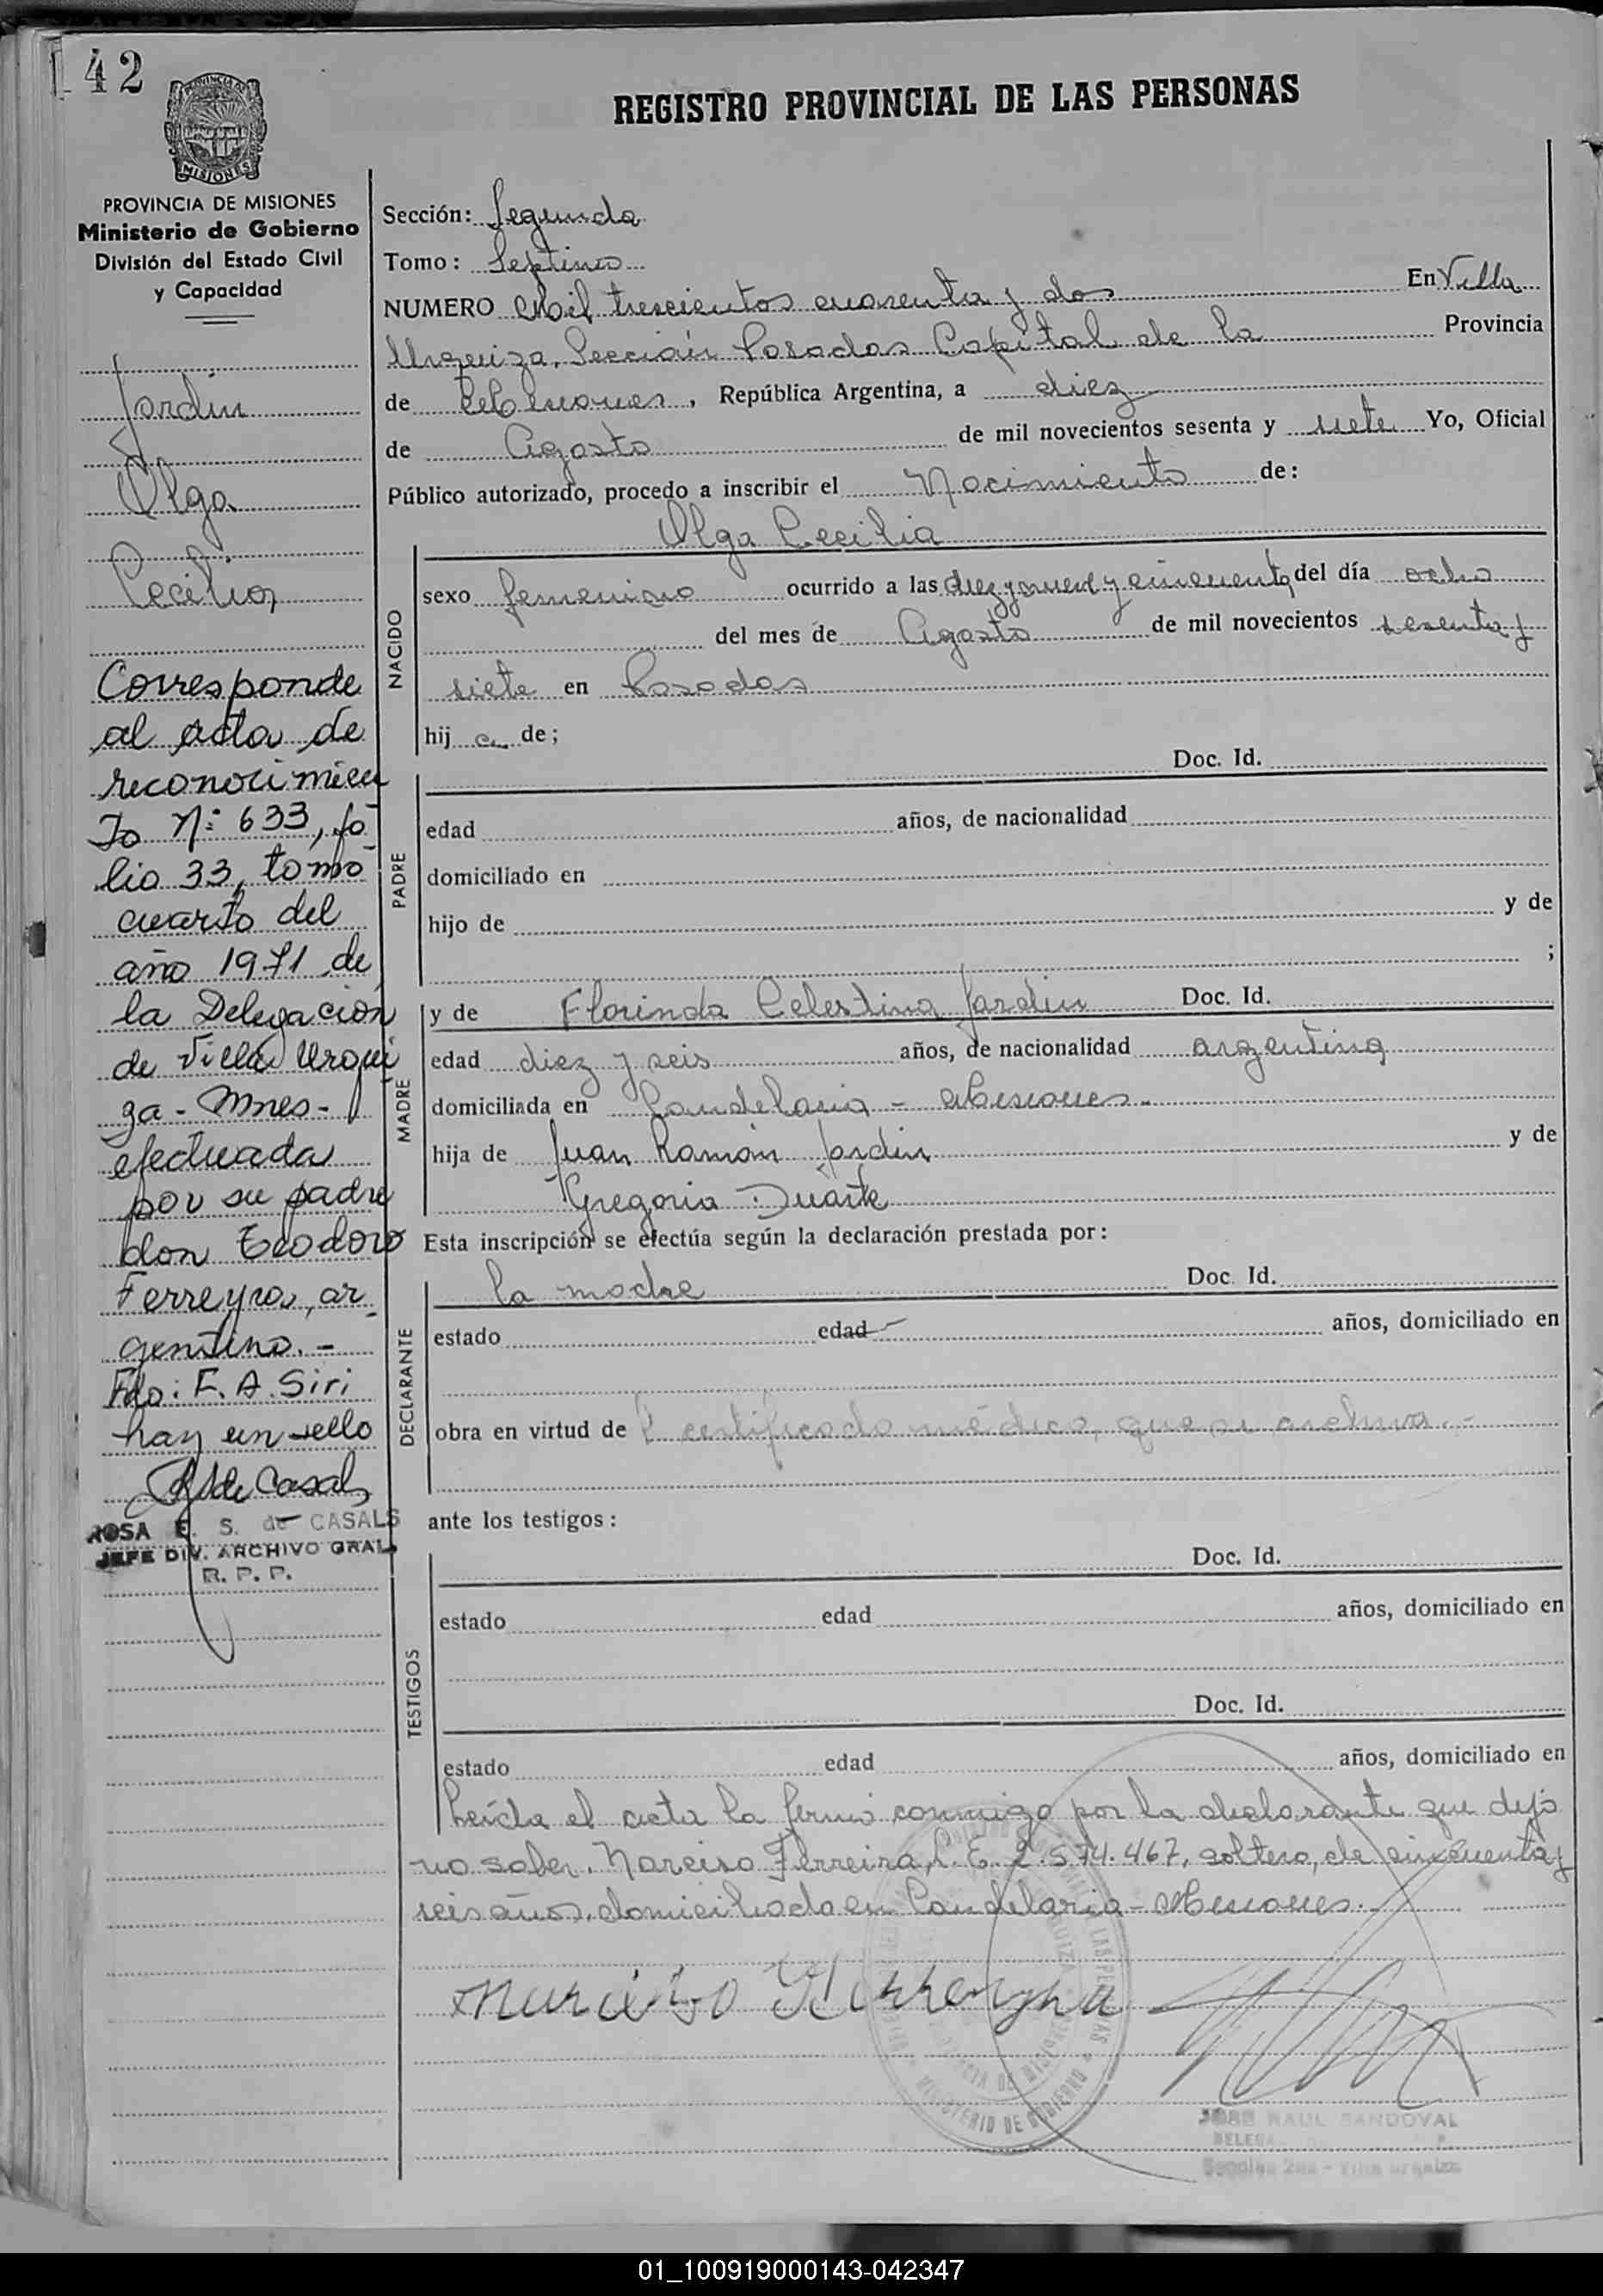 142
REGISTRO PROVINCIAL DE LAS PERSONAS
MISIONES
PROVINCIA DE MISIONES
Ministerio de Gobierno
División del Estado Civil
y Capacidad
Jardin
Olga
Cecilia
Corresponde
al acta de
reconocimien
to Nº 633, fo
lio 33, tomo
cuarto del
año 1971 de
la Delegación
de Villa Urqui
za - Mnes -
efectuada
por su padre
don Teodoro
Ferreyra, ar
gentino. -
Fdo: F. A. Siri
hay un sello
R S de Casals
ROSA E. S. de CASALS
JEFE DIV. ARCHIVO GRAL
R. P. P.
Sección: Segunda
Tomo: Septimo
NUMERO Mil trescientos cuarenta y dos En Villa
Urquiza, Sección Posadas Capital de la Provincia
de Misiones, República Argentina, a diez
de Agosto de mil novecientos sesenta y siete Yo, Oficial
Público autorizado, procedo a inscribir el Nacimiento de:
Olga Cecilia
NACIDO
sexo femenino ocurrido a las diez y nueve y cincuenta del día ocho
del mes de Agosto de mil novecientos sesenta y
siete en Posadas
hij a de;
PADRE
Doc. Id.
edad años, de nacionalidad
domiciliado en
hijo de y de
;
MADRE
y de Florinda Celestina Jardin Doc. Id.
edad diez y seis años, de nacionalidad argentina
domiciliada en Candelaria - Misiones.
hija de Juan Ramón Jardin y de
Gregoria Duarte
Esta inscripción se efectúa según la declaración prestada por:
DECLARANTE
la madre Doc. Id.
estado edad años, domiciliado en
obra en virtud de certificado médico, que se archiva. -
ante los testigos:
TESTIGOS
Doc. Id.
estado edad años, domiciliado en
Doc. Id.
estado edad años, domiciliado en
Leída el acta la firmó conmigo por la declarante que dijo
no saber, Narciso Ferreira, L. E. 2.574.467, soltero, de cincuenta y
seis años, domiciliado en Candelaria - Misiones.
Narciso Ferreyra
MINISTERIO DE GOBIERNO
JOSE RAUL SANDOVAL
Sección 2da - Villa Urquiza
01_100919000143-042347